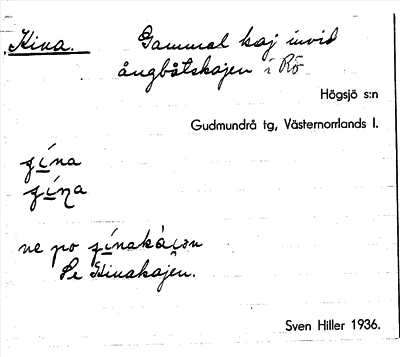 Kina. Gammal kaj invid
ångbåtskajen i Rö
Högsjö s:n
Gudmundrå tg, Västernorrlands l.
ʒína
ʒíɳa
ne po ʒínakàiən
Se Kinakajen.
Sven Hiller 1936.